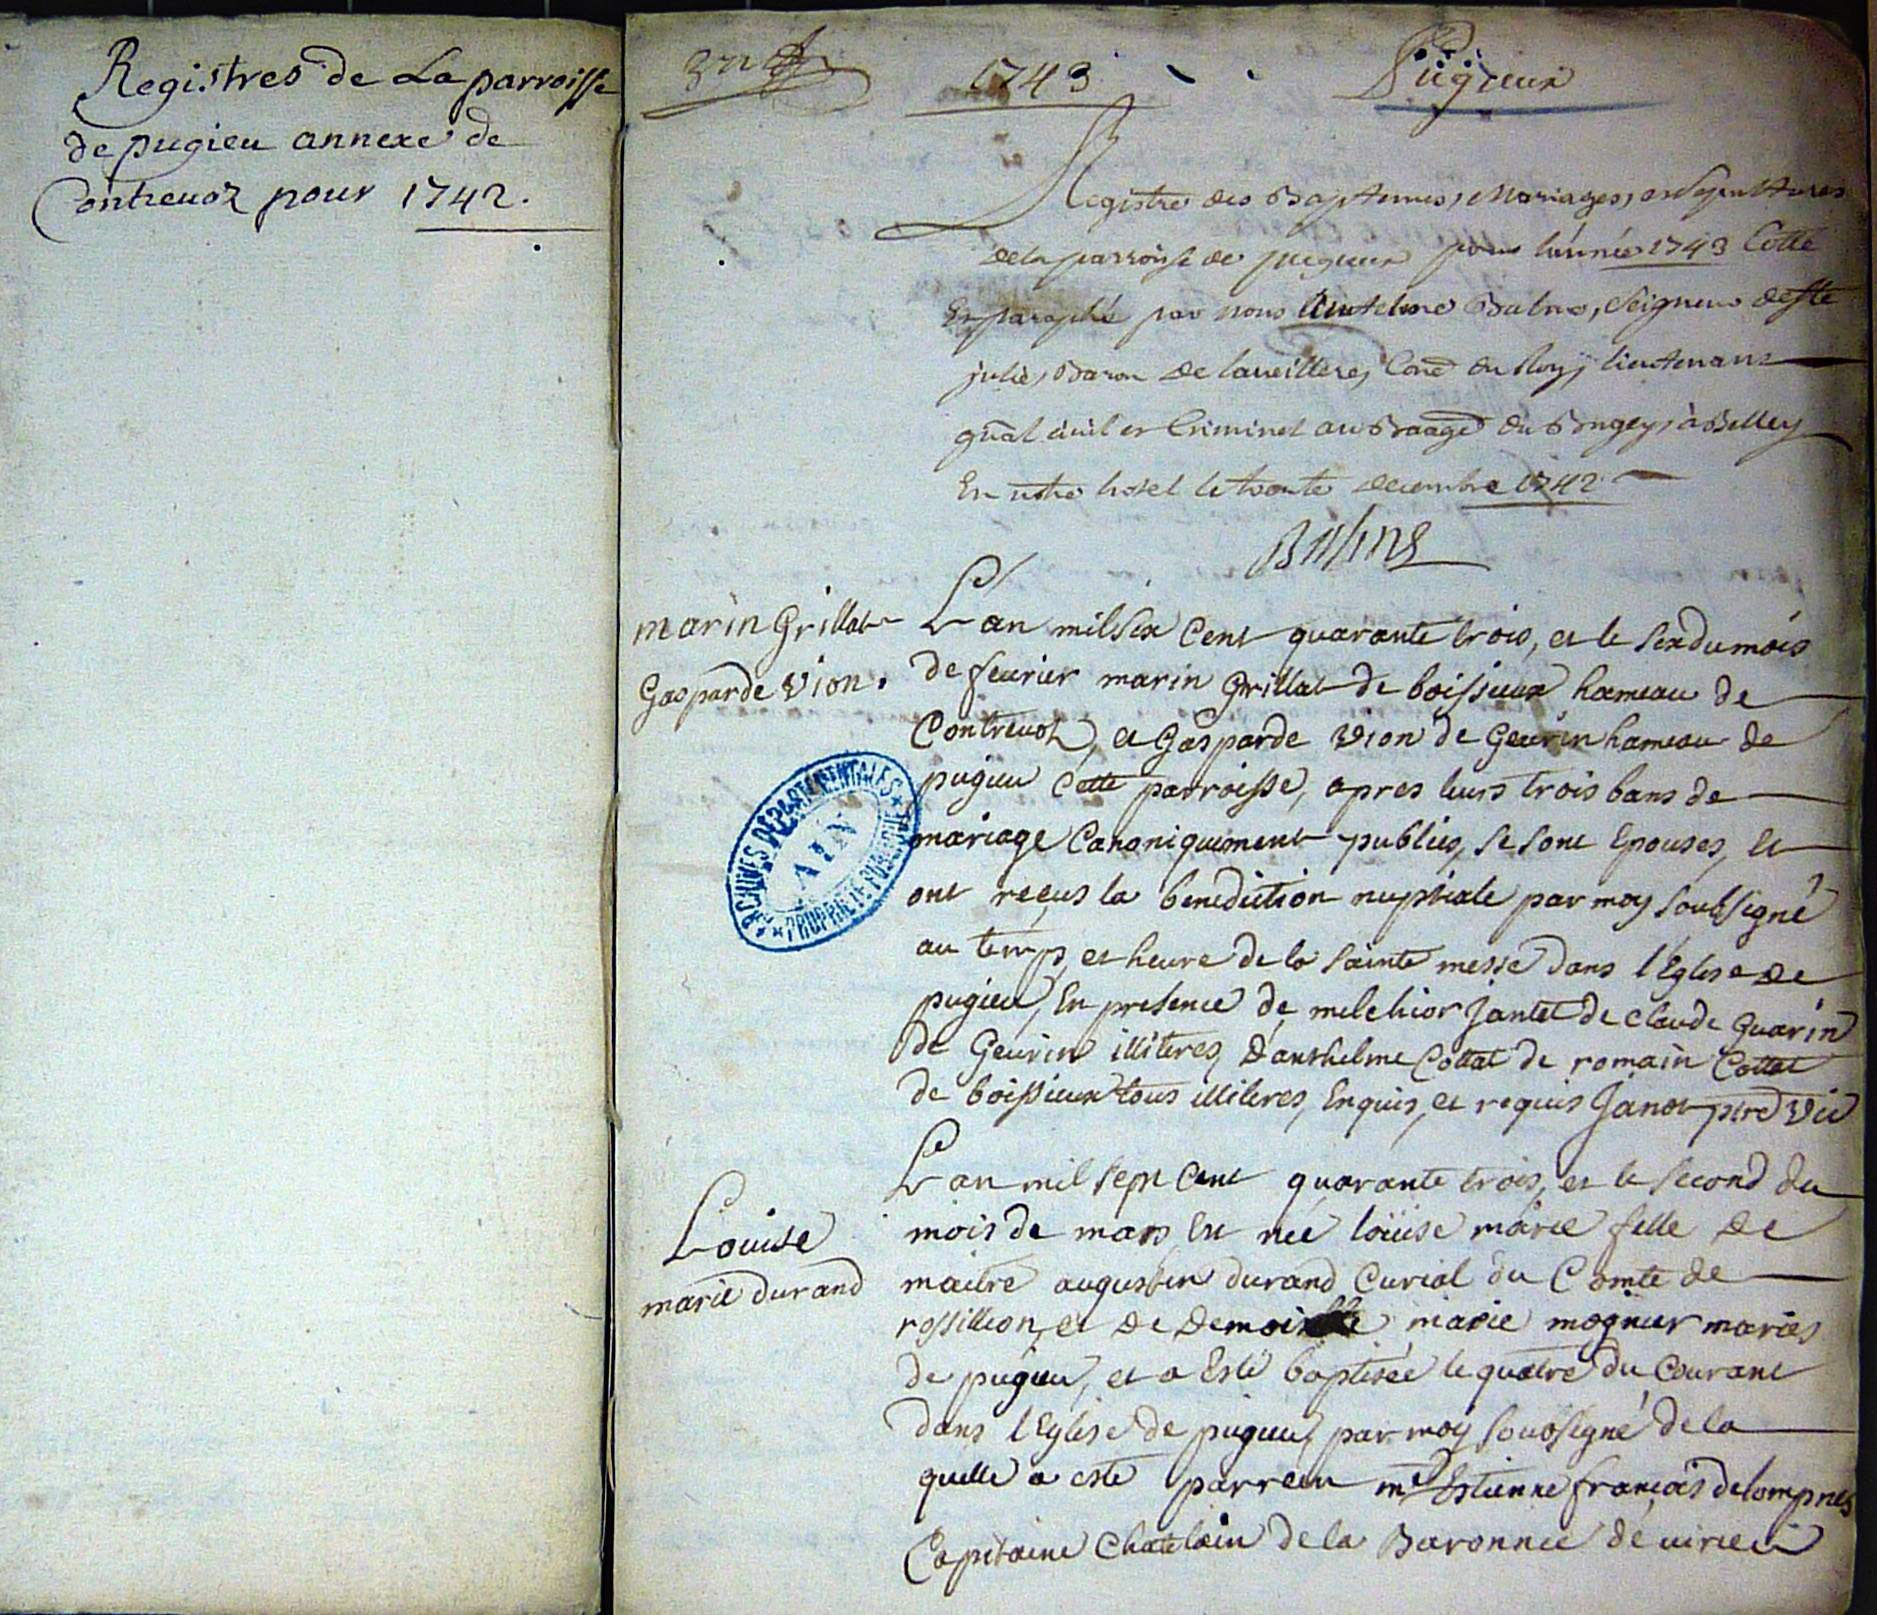 Registres de La parroisse
de pugieu annexe de
Contrevoz pour 1742.
1743
Pugieux
Registre des Baptemes, Mariages, et sepultures
de la parroisse de pugieux pour l'année 1743 Cotté
Et paraphé par nous Antelme Balme, Seigneur de Ste
julie, Baron de Conr du Roy, lieutenant
gñal civil et Criminel au Baage du Bugey, à Belley
En notre hotel le trente decembre 1742
Balme
marin Grillat
Gasparde Vion.
L'an mil six Cent quarante trois, et le six du mois
de feurier marin Grillat de boissieux hameau de
Contreuoz, et Gasparde Vion de Geurin hameau de
pugieu Cette parroisse, apres leurs trois bans de
mariage Canoniquement publies, se sont Epouses, Et
ont reçus la benediction nuptiale par moy soubsigné
au temps et heure de la sainte messe dans l'Eglise de
pugieu, En presence de melchior Jantet de claude guarin
de Geurin illiteres, D'anthelme Cottat de romain Cottat
de boissieux tous illiteres, Enquis, et requis Janot ptre Vic
ARCHIVES DEPARTEMENTALES
AIN
PROPRIETE PUBLIQUE
Louise
marie durand
L'an mil sept Cent quarante trois, et le second du
mois de mars Est née loüise marie fille de
maitre augustin durand Curial du Comte de
rossillion, et de Demoiselle marie mognier maries
de pugieu, et a Esté baptisée le quatre du Courant
dans l'Eglise de pugieu, par moy soubsigné de la
quelle a esté parrein mre Estienne françois delompnes
Capitaine Chatelain de la Baronnie de virieu